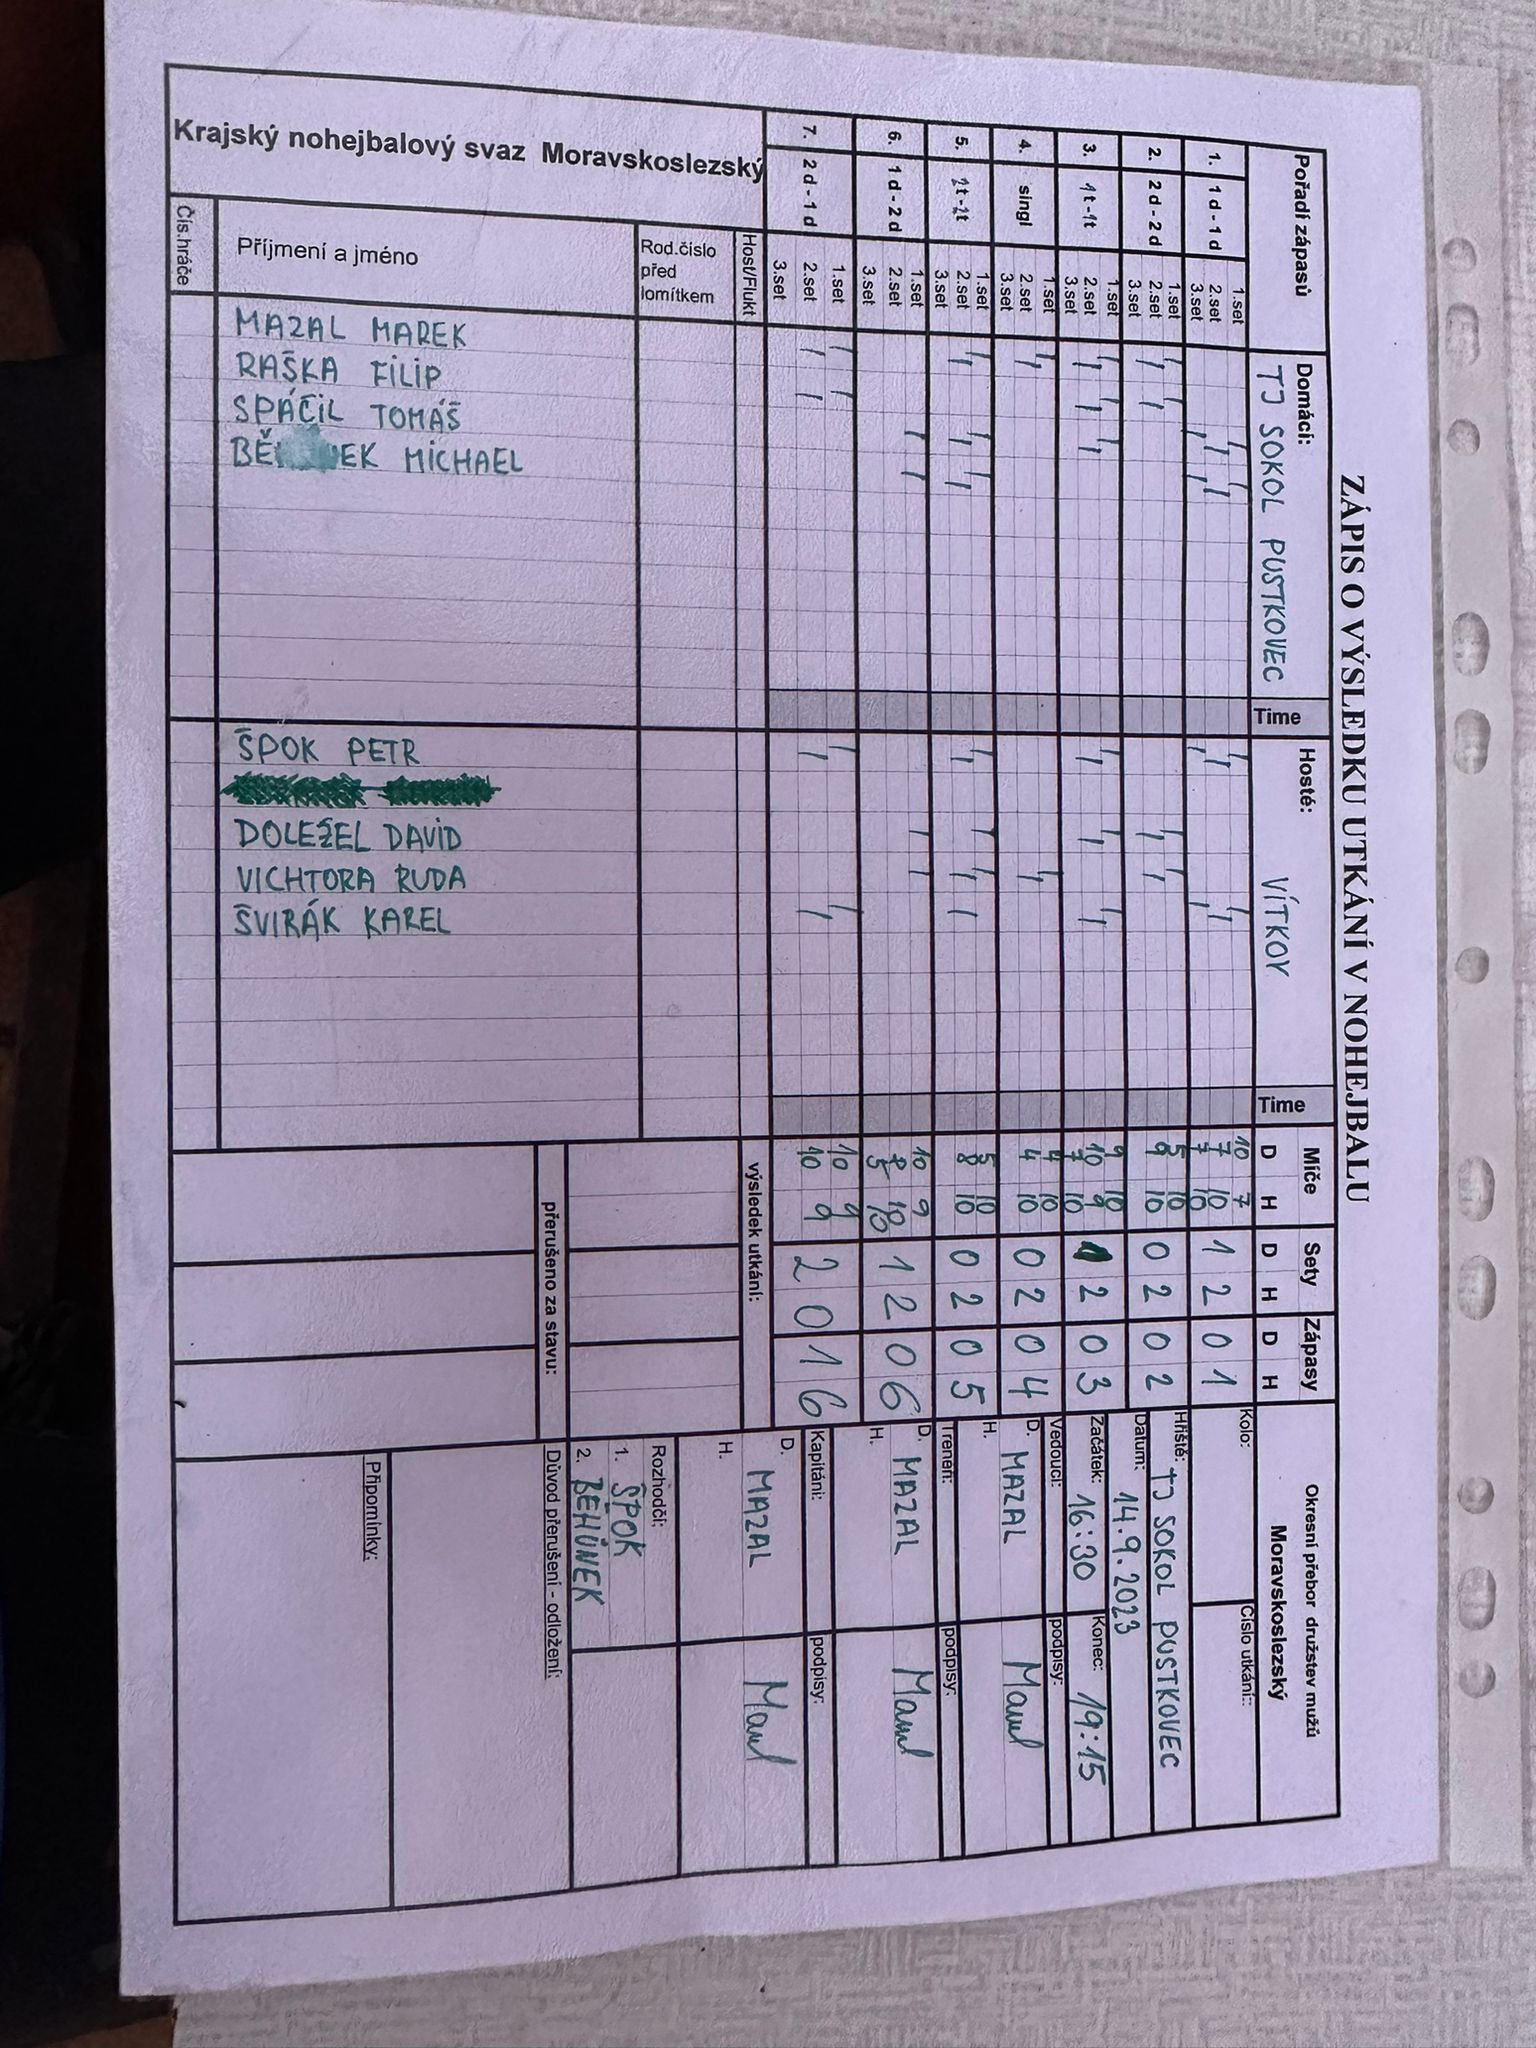 ZÁPIS O VÝSLEDKU UTKÁNÍ V NOHEJBALU
Pořadí zápasů Domácí: TJ SOKOL PUSTKOVEC Time Hosté: VÍTKOV Time Míče Sety Zápasy
D H D H D H
Okresní přebor družstev mužů
Moravskoslezský
Kolo: Číslo utkání:
Hřiště: TJ SOKOL PUSTKOVEC
Datum: 14.9.2023
Začátek: 16:30 Konec: 19:15
Vedoucí: podpisy:
D. MAZAL
H.
Trenéři: podpisy:
D. MAZAL
H.
Kapitáni: podpisy:
D. MAZAL
H.
Rozhodčí:
1. ŠPOK
2. BĚHŮNEK
Důvod přerušení - odložení:
Připomínky:
1. 1 d - 1 d 1 2 0 1
1.set 10 7
2.set 7 10
3.set 7 10
2. 2 d - 2 d 0 2 0 2
1.set 5 10
2.set 9 10
3.set
3. 1t - 1t 2 0 3
1.set 9 10
2.set 10 9
3.set 7 10
4. singl 0 2 0 4
1.set 7 10
2.set 4 10
3.set
5. 2t - 2t 0 2 0 5
1.set 5 10
2.set 8 10
3.set
6. 1 d - 2 d 1 2 0 6
1.set 10 9
2.set 8 10
3.set 5 10
7. 2 d - 1 d 2 0 1 6
1.set 10 9
2.set 10 9
3.set
Host/Flukt
výsledek utkání:
přerušeno za stavu:
Rod.číslo
před
lomítkem
Příjmení a jméno
Čís.hráče
MAZAL MAREK
RAŠKA FILIP
SPÁČIL TOMÁŠ
MICHAEL
ŠPOK PETR
DOLEŽEL DAVID
VICHTORA RUDA
ŠVIRÁK KAREL
Krajský nohejbalový svaz Moravskoslezský